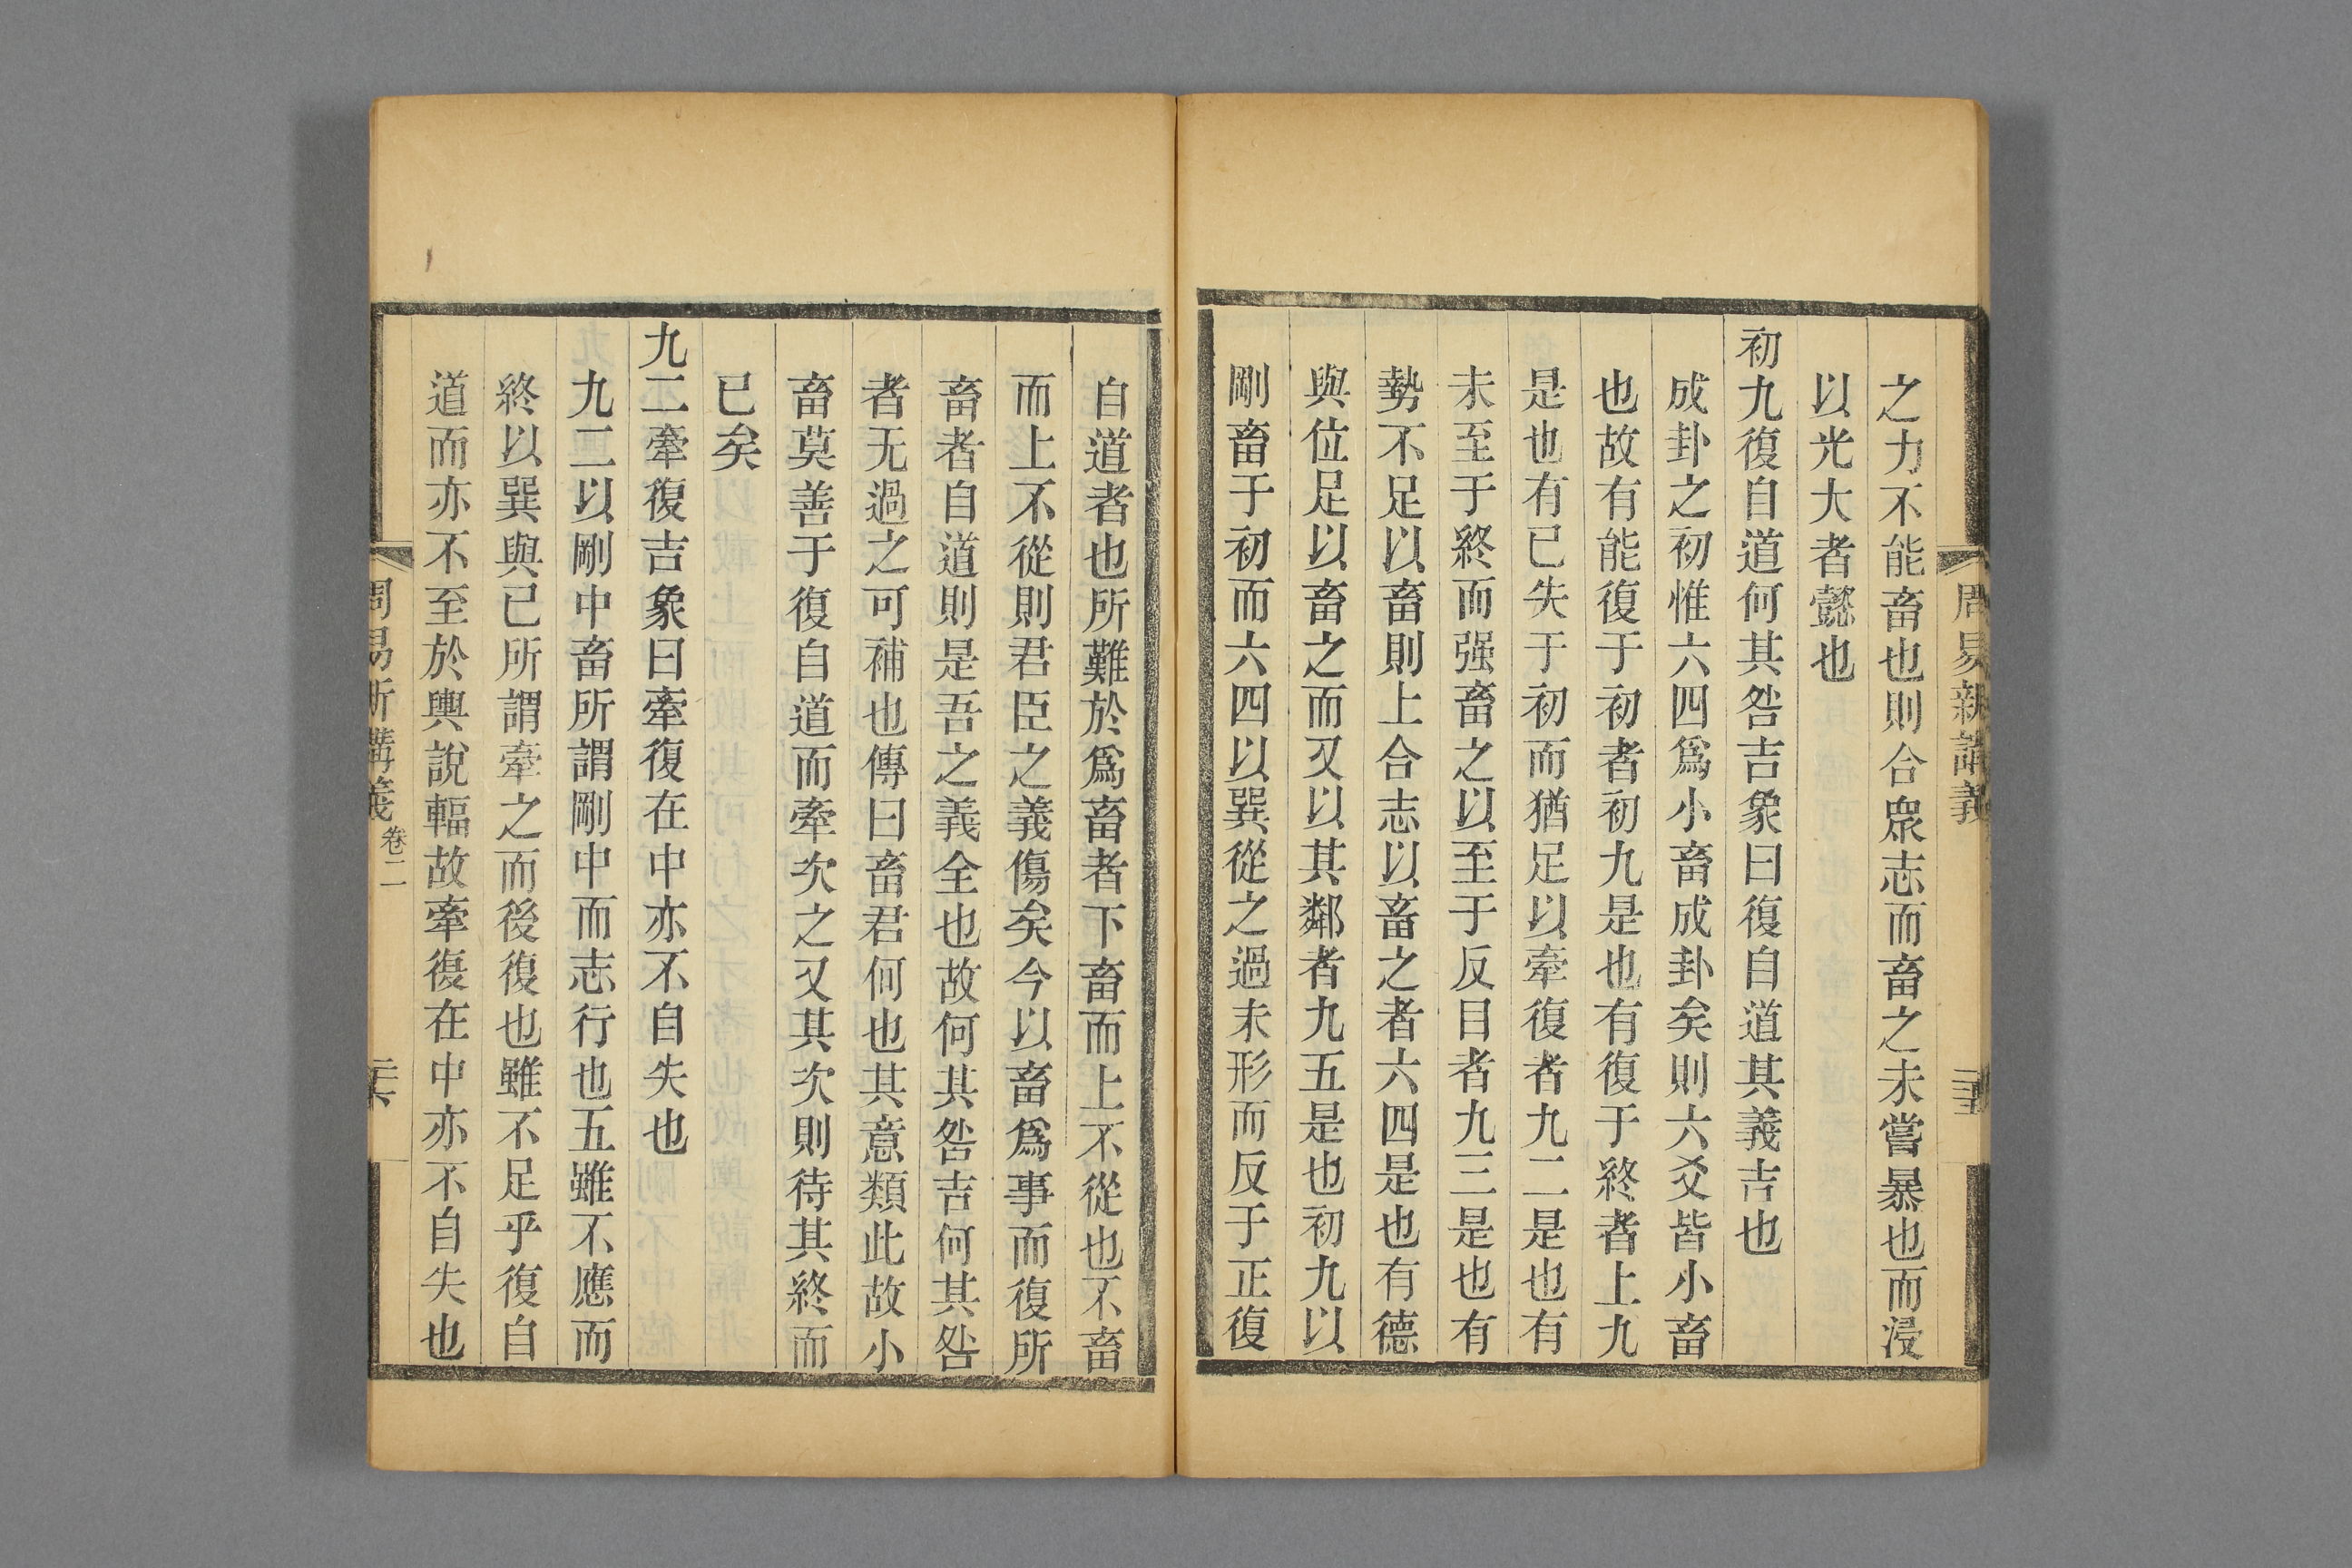 周易新講義
之力不能畜也則合眾志而畜之未嘗暴也而浸
以光大者懿也
初九復自道何其咎吉象曰復自道其義吉也
成卦之初惟六四爲小畜成卦矣則六爻皆小畜
也故有能復于初者初九是也有復于終者上九
是也有已失于初而猶足以牽復者九二是也有
未至于終而强畜之以至于反目者九三是也有
勢不足以畜則上合志以畜之者六四是也有德
與位足以畜之而又以其鄰者九五是也初九以
剛畜于初而六四以巽從之過未形而反于正復
自道者也所難於爲畜者下畜而上不從也不畜
而上不從則君臣之義傷矣今以畜爲事而復所
畜者自道則是吾之義全也故何其咎吉何其咎
者无過之可補也傳曰畜君何也其意類此故小
畜莫善于復自道而牽次之又其次則待其終而
已矣
九二牽復吉象曰牽復在中亦不自失也
九二以剛中畜所謂剛中而志行也五雖不應而
終以巽與已所謂牽之而後復也雖不足乎復自
道而亦不至於輿說輻故牽復在中亦不自失也
周易新講義 卷二